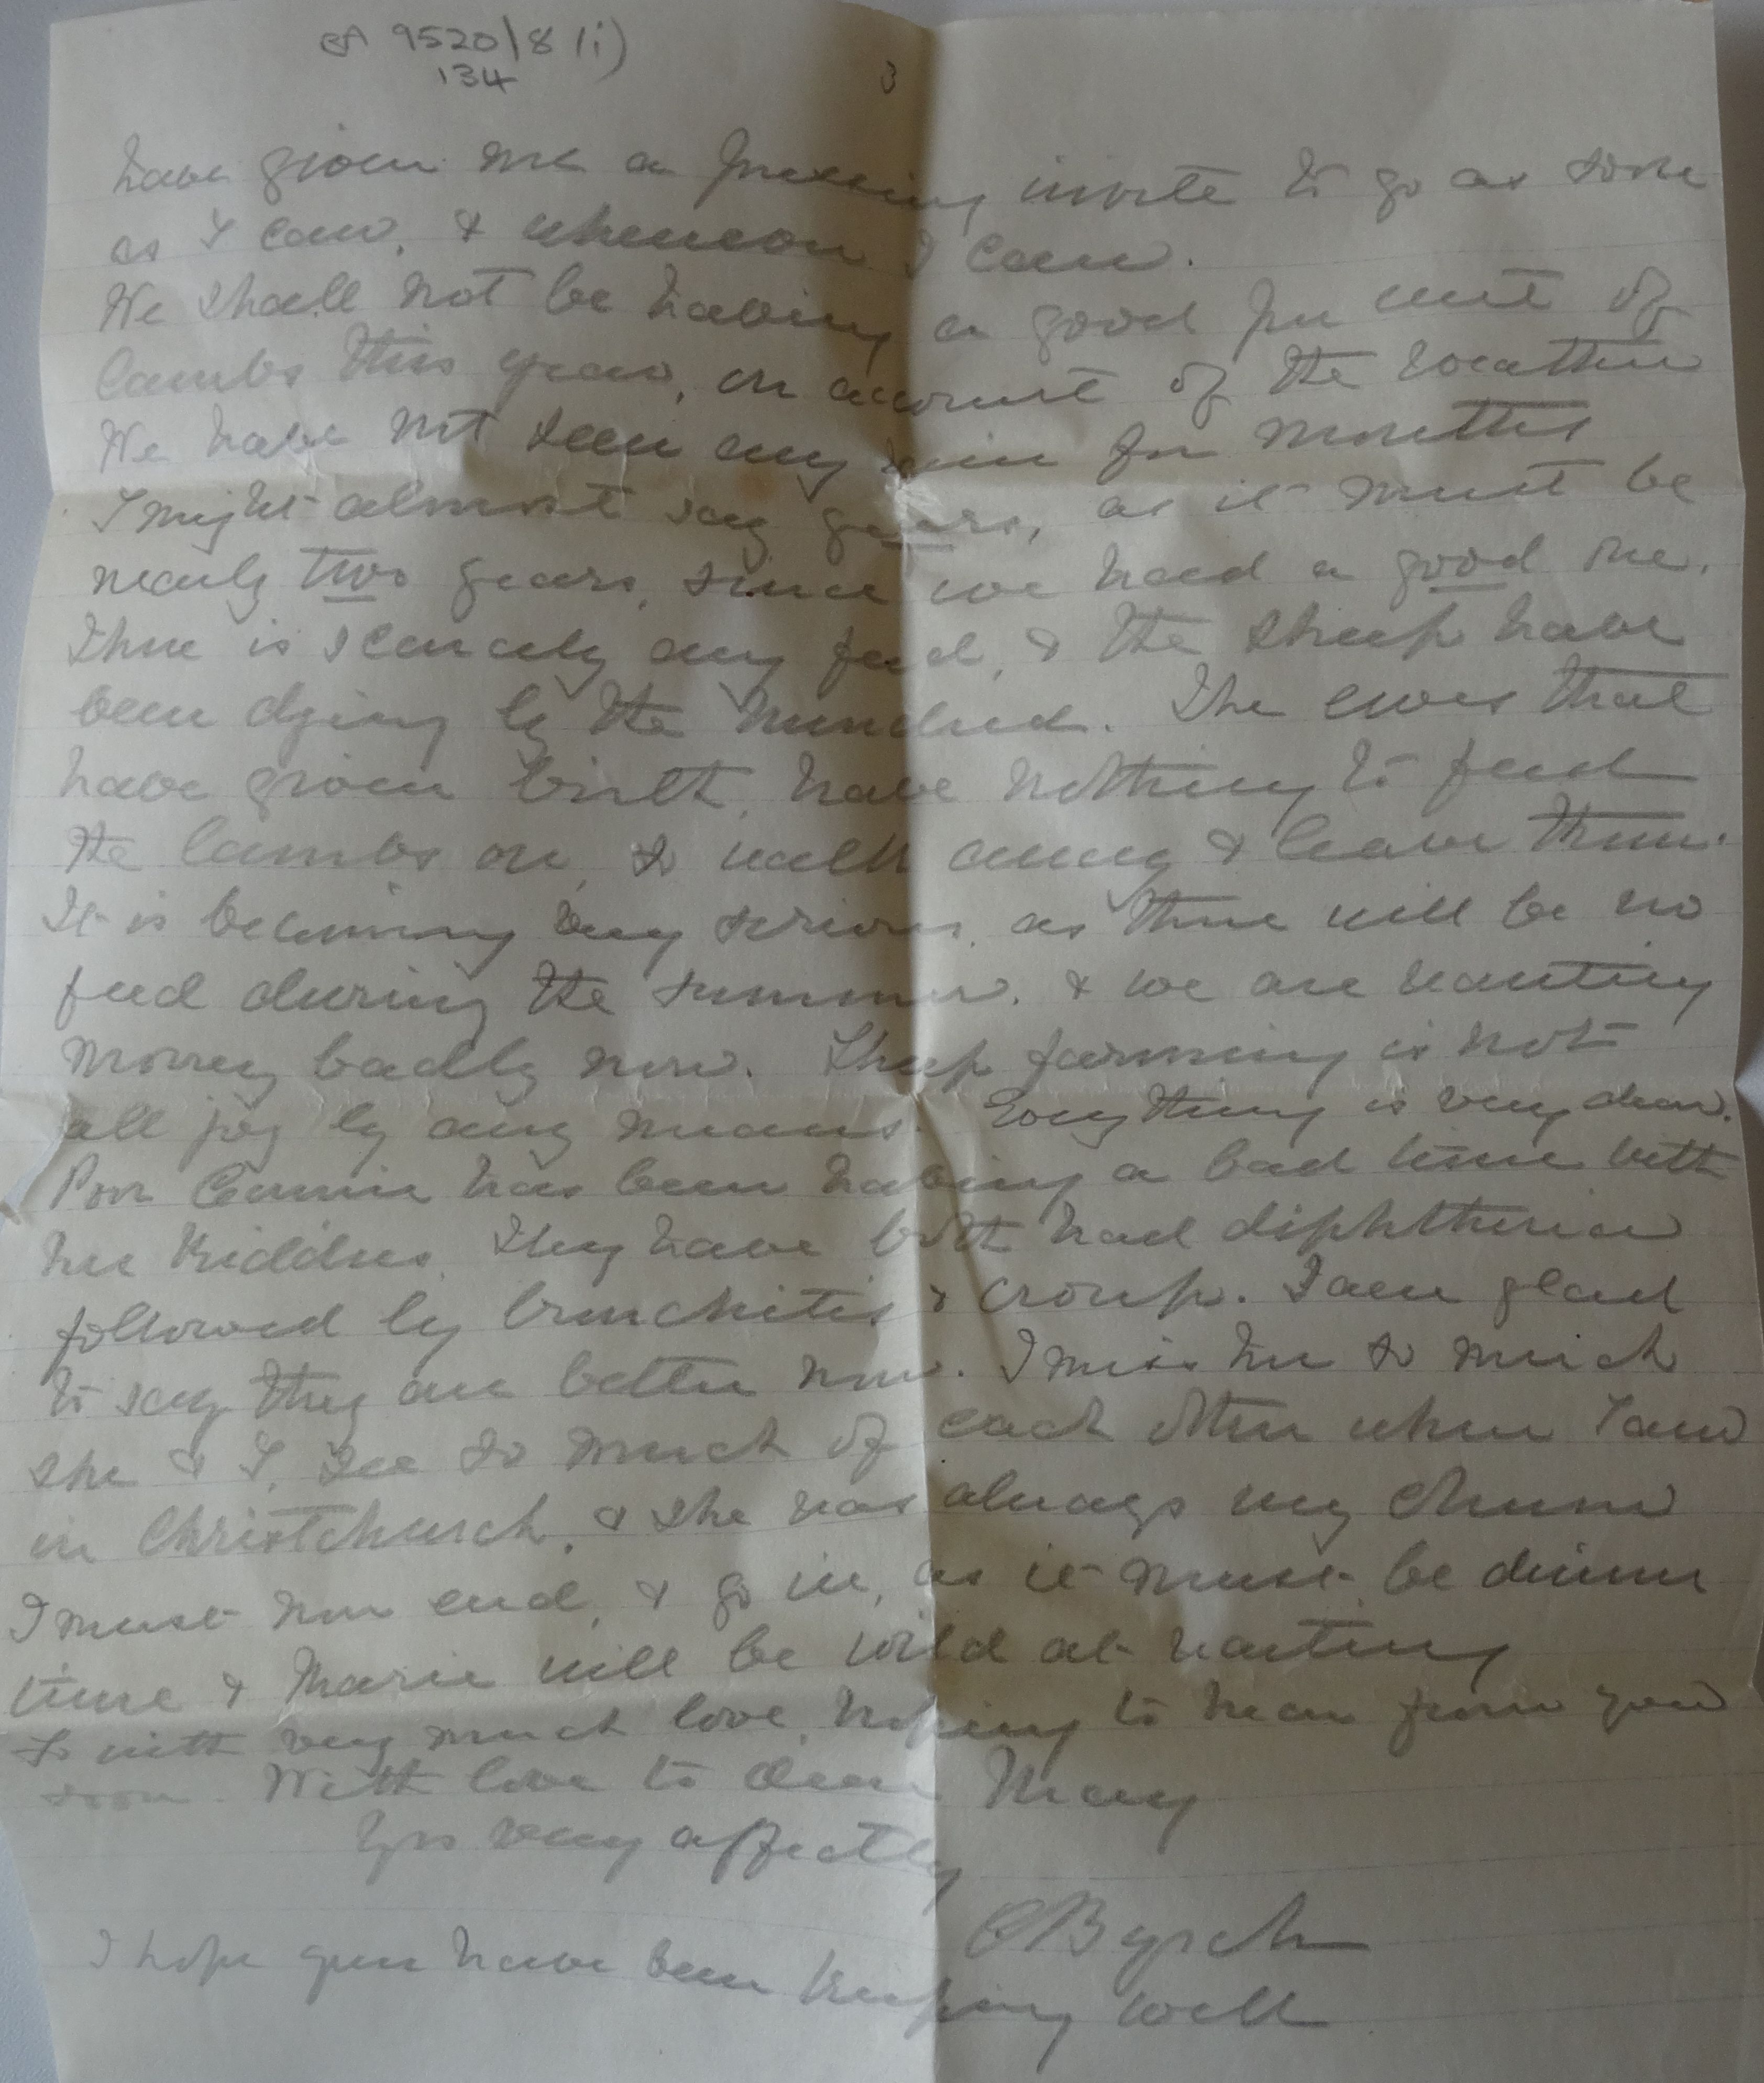 9520/8 (i)
134
3
have given me a pressing invite to go as soon
as I can, & whenever I can.
We shall not be having a good per cent of
lambs this year, on account of the weather
We have not seen any rain for months
I might almost say years, as it must be
nearly two years, since we had a good one.
There is scarcely any feed, & the sheep have
been dying by the hundred. The ewes that
have given birth, have nothing to feed
the lambs on, so walk away & leave them.
It is becoming very serious, as there will be no
feed during the summer, & we are wanting
money badly now. Sheep farming is not
all joy by any means. Everything is very dear.
Poor Connie has been having a bad time with
her kiddies. They have both had diphtheria
followed by bronchitis & croup. I am glad
to say they are better now. I miss her so much
she & I, see so much of each other when I am
in Christchurch, & she was always my chum
I must now end, & go in, as it must be dinner
time & Marie will be wild at waiting
So with very much love, hoping to hear from you
soon. With love to dear Mary
Yrs very affectly
C Byrch
I hope you have been keeping well